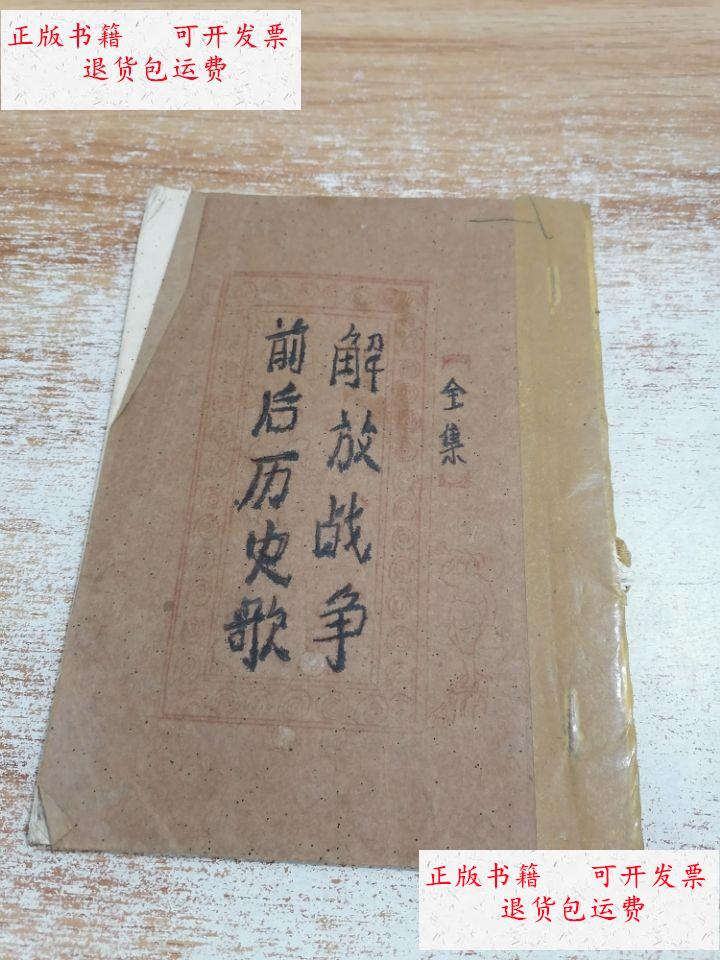 正版书籍 可开发票
退货包运费
【全集】
解放战争
前后历史歌
正版书籍 可开发票
退货包运费